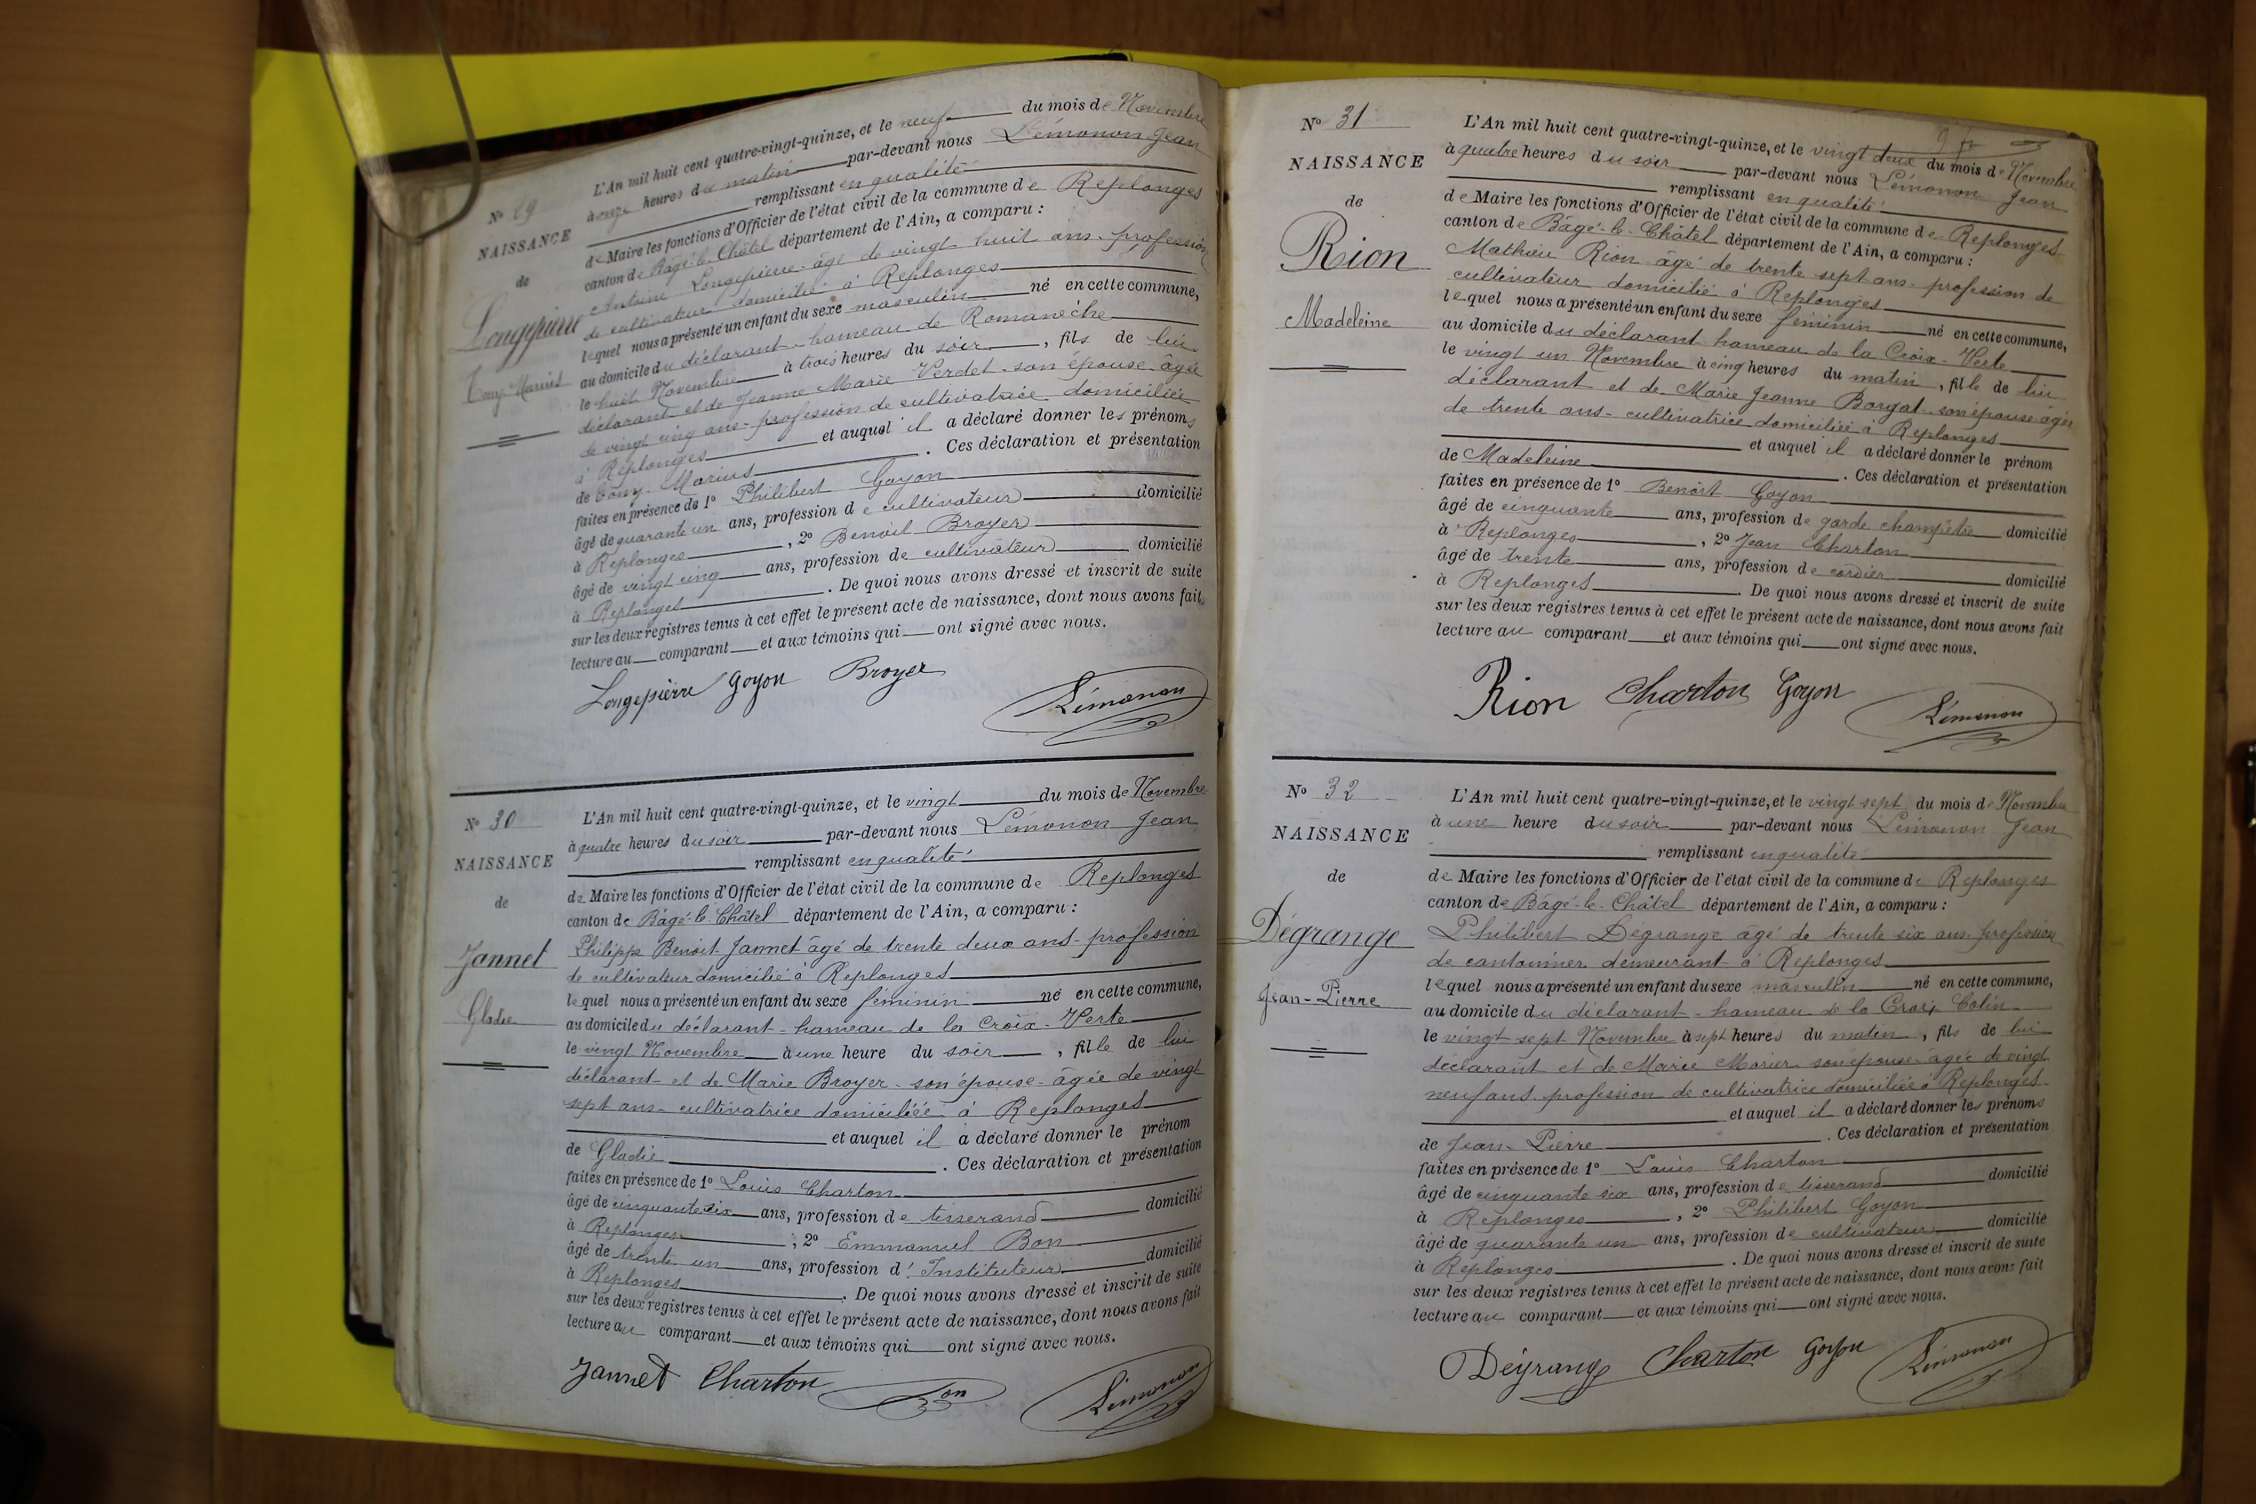 N° 29
NAISSANCE
de
Longepierre
Tony Marius
L'An mil huit cent quatre-vingt-quinze, et le neuf du mois de Novembre
à onze heures du matin par-devant nous Lémonon Jean
remplissant en qualité
de Maire les fonctions d'Officier de l'état civil de la commune de Replonges
canton de Bâgé-le-Châtel département de l'Ain, a comparu :
Antoine Longepierre âgé de vingt huit ans profession
de cultivateur domicilié à Replonges
lequel nous a présenté un enfant du sexe masculin né en cette commune,
au domicile du déclarant hameau de Romanèche
le huit Novembre à trois heures du soir, fils de lui
déclarant et de Jeanne Marie Verdet son épouse âgée
de vingt cinq ans profession de cultivatrice domiciliée
à Replonges et auquel il a déclaré donner les prénoms
de Tony Marius. Ces déclaration et présentation
faites en présence de 1° Philibert Goyon
âgé de quarante un ans, profession de cultivateur domicilié
à Replonges, 2° Benoit Broyer
âgé de vingt cinq ans, profession de cultivateur domicilié
à Replonges. De quoi nous avons dressé et inscrit de suite
sur les deux registres tenus à cet effet le présent acte de naissance, dont nous avons fait
lecture au comparant et aux témoins qui ont signé avec nous.
Longepierre Goyon Broyer
Lémonon
N° 30
NAISSANCE
de
Jannet
Gladie
L'An mil huit cent quatre-vingt-quinze, et le vingt du mois de Novembre
à quatre heures du soir par-devant nous Lémonon Jean
remplissant en qualité
de Maire les fonctions d'Officier de l'état civil de la commune de Replonges
canton de Bâgé-le-Châtel département de l'Ain, a comparu :
Philippe Benoit Jannet âgé de trente deux ans profession
de cultivateur domicilié à Replonges
lequel nous a présenté un enfant du sexe féminin né en cette commune,
au domicile du déclarant - hameau de la Croix-Verte
le vingt Novembre à une heure du soir, fille de lui
déclarant et de Marie Broyer son épouse âgée de vingt
sept ans cultivatrice domiciliée à Replonges
et auquel il a déclaré donner le prénom
de Gladie. Ces déclaration et présentation
faites en présence de 1° Louis Charton
âgé de cinquante six ans, profession de tisserand domicilié
à Replonges, 2° Emmanuel Bon
âgé de trente un ans, profession d'Instituteur domicilié
à Replonges. De quoi nous avons dressé et inscrit de suite
sur les deux registres tenus à cet effet le présent acte de naissance, dont nous avons fait
lecture au comparant et aux témoins qui ont signé avec nous.
Jannet Charton Bon
Lémonon
N° 31
NAISSANCE
de
Rion
Madeleine
L'An mil huit cent quatre-vingt-quinze, et le vingt deux du mois de Novembre
à quatre heures du soir par-devant nous Lémonon Jean
remplissant en qualité
de Maire les fonctions d'Officier de l'état civil de la commune de Replonges
canton de Bâgé-le-Châtel département de l'Ain, a comparu :
Mathieu Rion âgé de trente sept ans profession de
cultivateur domicilié à Replonges
lequel nous a présenté un enfant du sexe féminin né en cette commune,
au domicile du déclarant hameau de la Croix-Verte
le vingt un Novembre à cinq heures du matin, fille de lui
déclarant et de Marie Jeanne Borgat son épouse âgée
de trente ans - cultivatrice domiciliée à Replonges
et auquel il a déclaré donner le prénom
de Madeleine. Ces déclaration et présentation
faites en présence de 1° Benoît Goyon
âgé de cinquante ans, profession de garde champêtre domicilié
à Replonges, 2° Jean Charton
âgé de trente ans, profession de cordier domicilié
à Replonges. De quoi nous avons dressé et inscrit de suite
sur les deux registres tenus à cet effet le présent acte de naissance, dont nous avons fait
lecture au comparant et aux témoins qui ont signé avec nous.
Rion Charton Goyon
Lémonon
N° 32
NAISSANCE
de
Dégrange
Jean-Pierre
L'An mil huit cent quatre-vingt-quinze, et le vingt sept du mois de Novembre
à une heure du soir par-devant nous Lémonon Jean
remplissant en qualité
de Maire les fonctions d'Officier de l'état civil de la commune de Replonges
canton de Bâgé-le-Châtel département de l'Ain, a comparu :
Philibert Degrange âgé de trente six ans profession
de cantonnier demeurant à Replonges
lequel nous a présenté un enfant du sexe masculin né en cette commune,
au domicile du déclarant - hameau de la Croix Colin
le vingt sept Novembre à sept heures du matin, fils de lui
déclarant et de Marie Morier son épouse âgée de vingt
neuf ans profession de cultivatrice domiciliée à Replonges
et auquel il a déclaré donner les prénoms
de Jean-Pierre. Ces déclaration et présentation
faites en présence de 1° Louis Charton
âgé de cinquante six ans, profession de tisserand domicilié
à Replonges, 2° Philibert Goyon
âgé de quarante un ans, profession de cultivateur domicilié
à Replonges. De quoi nous avons dressé et inscrit de suite
sur les deux registres tenus à cet effet le présent acte de naissance, dont nous avons fait
lecture au comparant et aux témoins qui ont signé avec nous.
Dégrange Charton Goyon
Lémonon